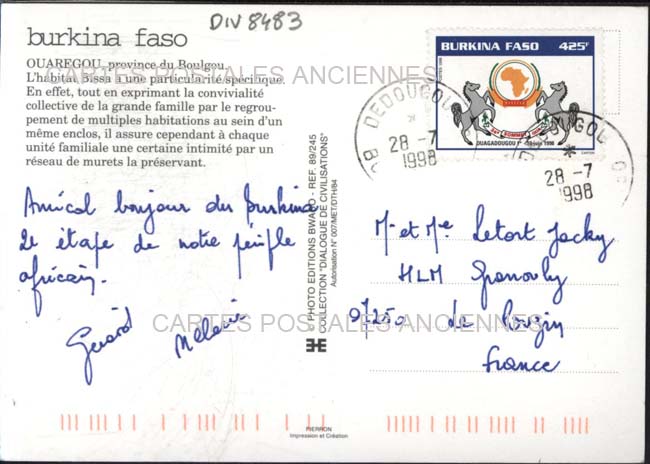 DIV 8483
burkina faso
OUAREGOU, province du Boulgou.
L'habitat Bissa a une particularité spécifique.
En effet, tout en exprimant la convivialité
collective de la grande famille par le regrou-
pement de multiples habitations au sein d'un
même enclos, il assure cependant à chaque
unité familiale une certaine intimité par un
réseau de murets la préservant.
Amical bonjour du Burkina
2e étape de notre périple
africain.
Gérard Mélanie
PHOTO EDITIONS BWABO - REF. 89/245
COLLECTION "DIALOGUE DE CIVILISATIONS"
Autorisation N° 007/MET/DTH/84
BURKINA FASO 425F
SOMMET
OUAGADOUGOU
juin 1998
DEDOUGOU
28 -7
1998
28 -7
1998
Mr et Me Letort Jacky
HLM
07250 le Pouzin
France
PIERRON
Impression et Création
CARTES POSTALES ANCIENNES
CARTES POSTALES ANCIENNES